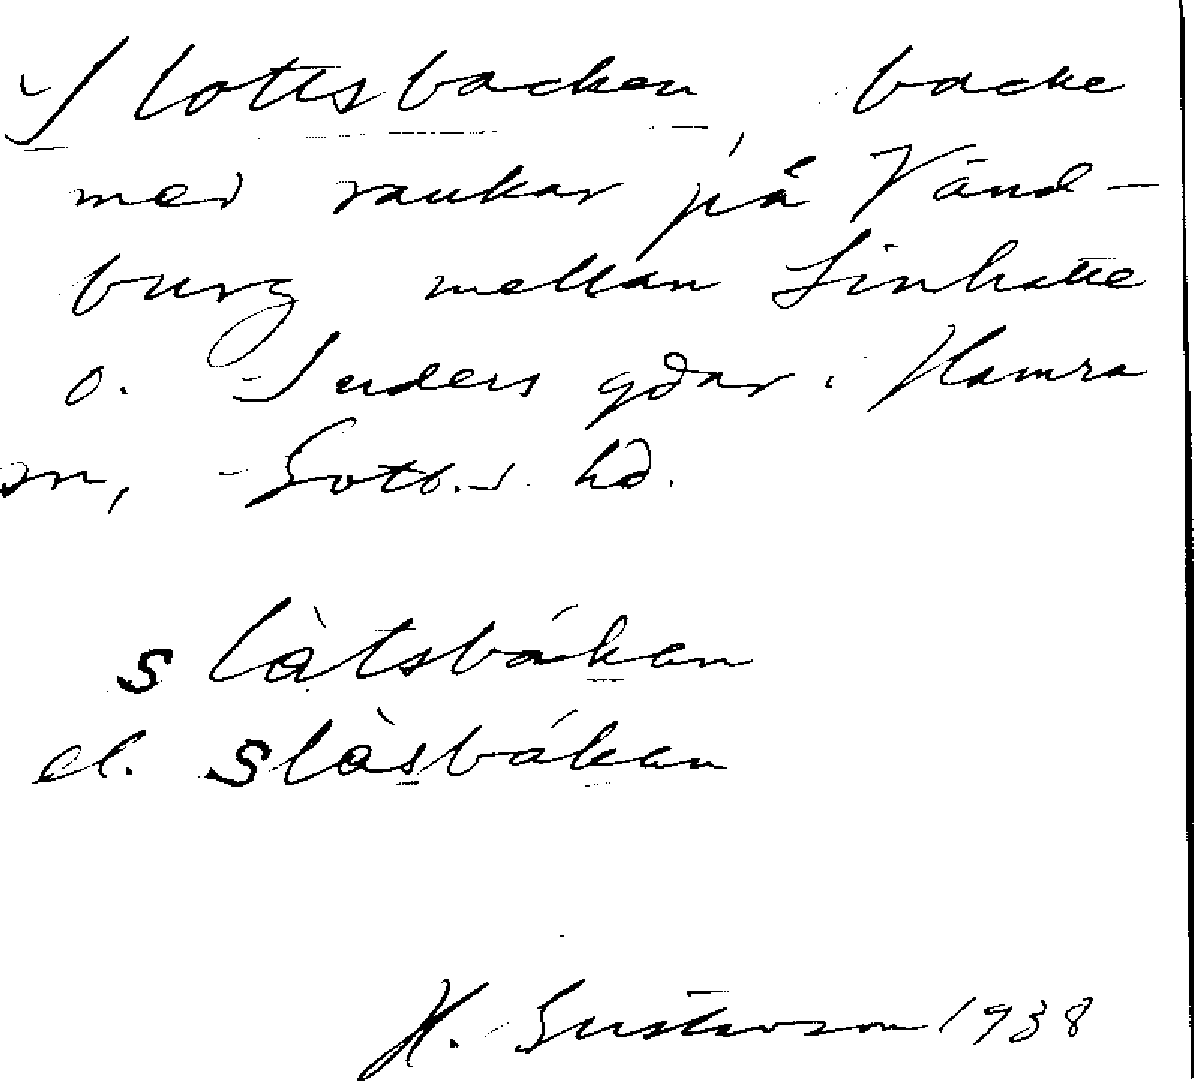 Slottsbacken, backe
med raukar på Vänd-
burg mellan Linhatte
o. Suders gdar i Hamra
sn, Gotl. s. hd.
slàtsbákan
el. slàsbákan
H. Gustavson 1938